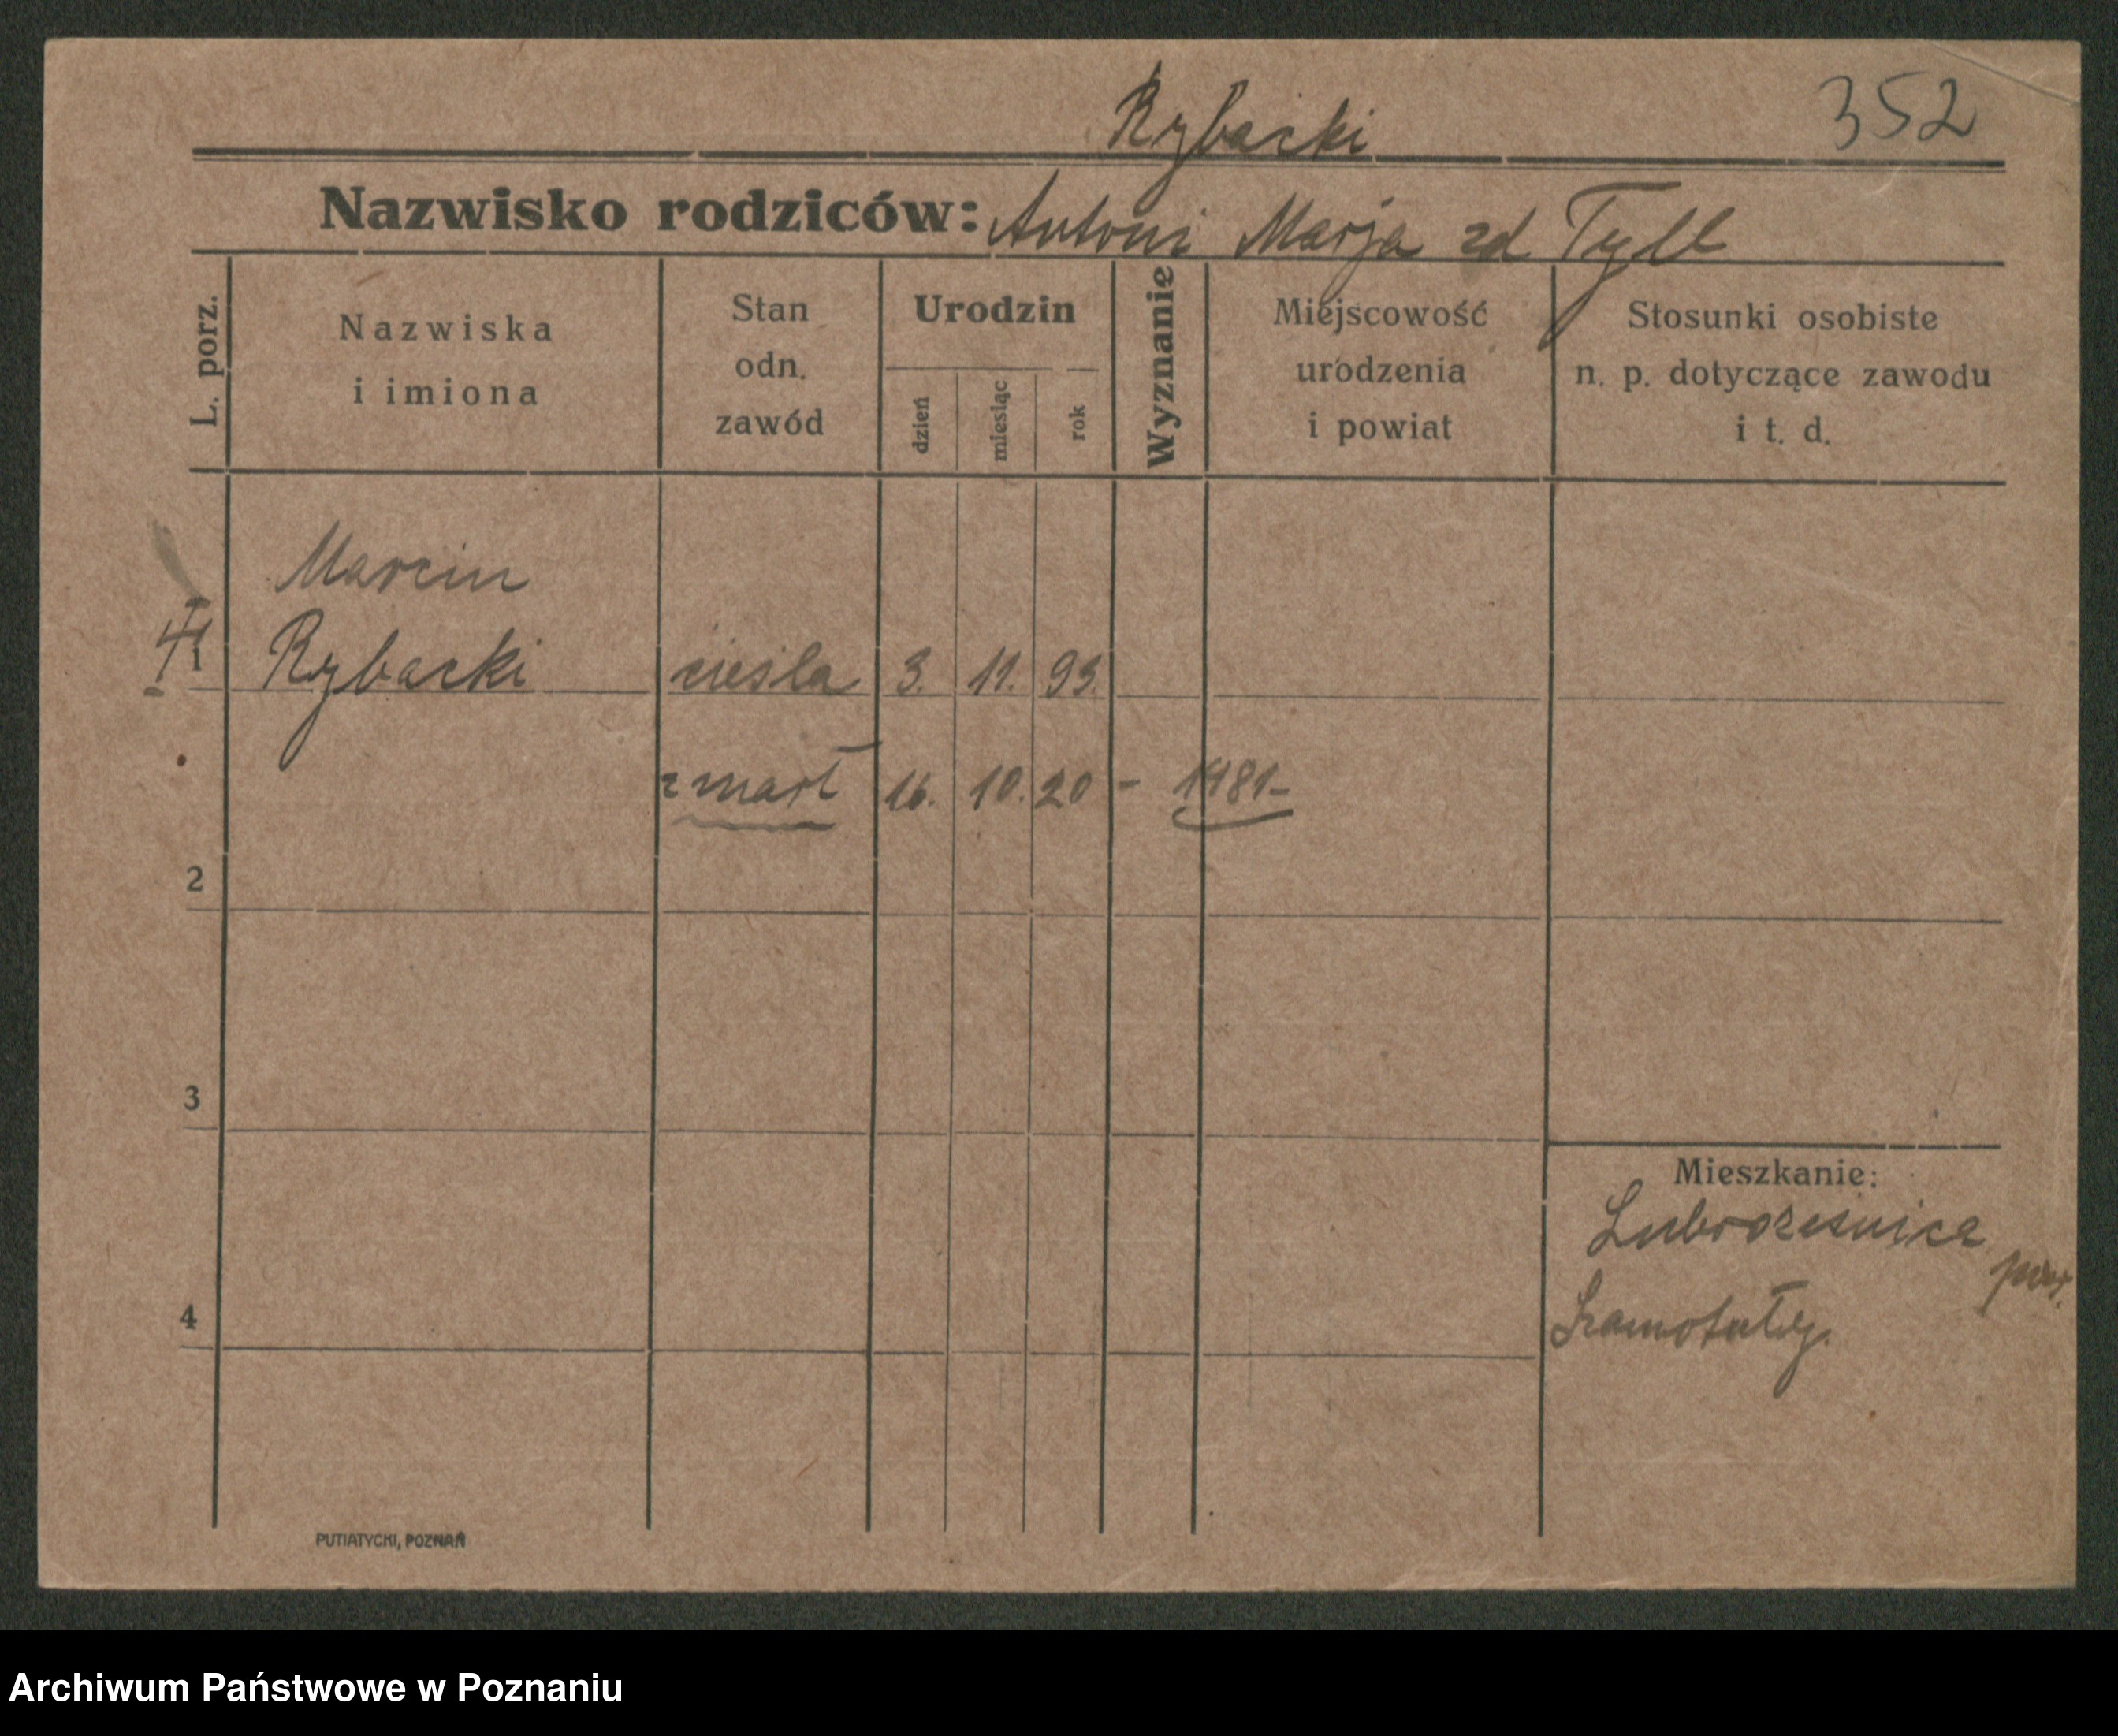 Rybacki
352
Nazwisko rodziców: Antoni Marja zd Tyll
L. porz.
Nazwiska
i imiona
Stan
odn.
zawód
Urodzin
dzień
miesiąc
rok
Wyznanie
Miejscowość
urodzenia
i powiat
Stosunki osobiste
n. p. dotyczące zawodu
i t. d.
Marcin
1 Rybacki cieśla 3. 11. 93.
zmarł 16. 10. 20 - 1981-
2
3
Mieszkanie:
pow.
4 Szamotuły.
PUTIATYCKI, POZNAŃ
Archiwum Państwowe w Poznaniu